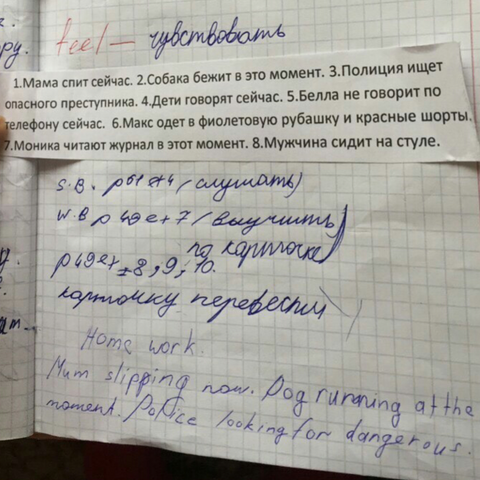 ру.
feel — чувствовать
1.Мама спит сейчас. 2.Собака бежит в это момент. 3.Полиция ищет
опасного преступника. 4.Дети говорят сейчас. 5.Белла не говорит по
телефону сейчас. 6.Макс одет в фиолетовую рубашку и красные шорты.
7.Моника читают журнал в этот момент. 8.Мужчина сидит на стуле.
S.B. p 61 ex 4 (слушать)
W.B p 49 ex 7 (выучить)
по карточке)
p 49 ex 8, 9, 10.
карточку перевести
Home work.
Mum slipping now. Dog running at the
moment. Police looking for dangerous.